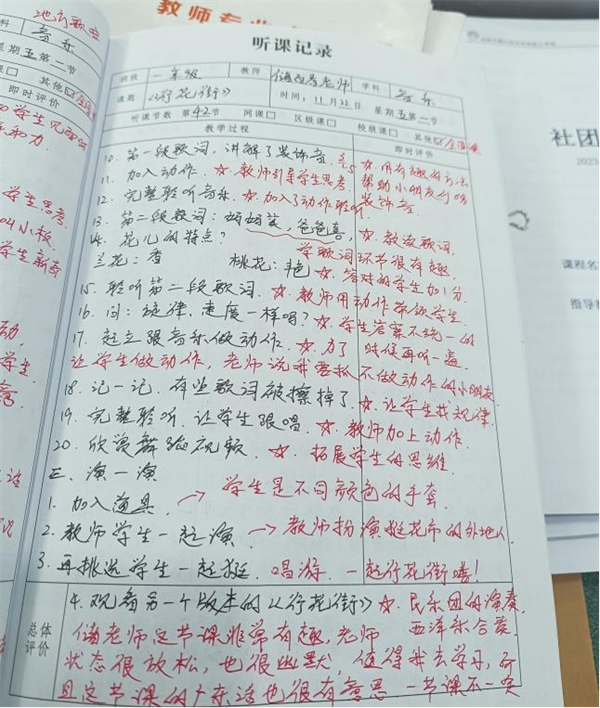 教师专业
地方歌曲
音乐
星期五第二节
其他
即时评价
听课记录
班级 一年级 教师 老师 学科 音乐
课题 《行花街》 时间：11月22日 星期五第二节
听课节数 第42节 同课□ 区级课□ 校级课□ 其他
教学过程 即时评价
10. 第一段歌词，讲解了装饰音. ☆. 用有趣的方法
11. 加入动作. ☆. 教师引导学生思考. 帮助小朋友们唱
12. 完整聆听音乐. ☆. 加入了动作聆听. 装饰音.
13. 第二段歌词：妈妈笑，爸爸喜, ☆. 教读歌词.
14. 花儿的特点? 学歌词环节很有趣.
兰花：香 桃花：艳 ☆. 答对的学生加1分.
15. 聆听第二段歌词. ☆. 教师用动作带领学生.
16. 问：旋律、速度一样吗? ☆. 学生答案不统一的
17. 起立跟音乐做动作. ☆. 为了 时候再听一遍.
让学生做动作，老师说我要抓不做动作的小朋友
18. 记一记. 有些歌词被擦掉了. ☆. 让学生找规律
19. 完整聆听. 让学生跟唱. ☆. 教师加上动作.
20. 欣赏舞蹈视频. ☆. 拓展学生的思维.
三. 演一演
1. 加入道具. → 学生是不同颜色的手套.
2. 教师学生一起演 → 教师扮演逛花市的外地人.
3. 再挑选学生一起逛. 唱游. 一起行花街喽!
4. 观看另一个版本的《行花街》 ☆. 民乐团的演奏.
西洋乐合奏
总体评价
老师这节课非常有趣, 老师
状态很放松，也很幽默，值得我去学习，而
且这节课的广东话也很有意思.
社团
2023
课程名
指导教